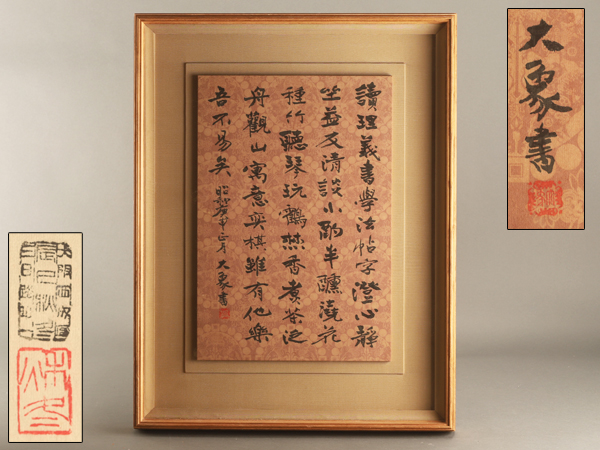 讀理義書學法帖字澄心靜
坐益友清談小酌半醺澆花
種竹聽琴玩鶴焚香煮茶泛
舟觀山寓意奕棋雖有他樂
吾不易矣 昭和 申正月 大象書
大象書